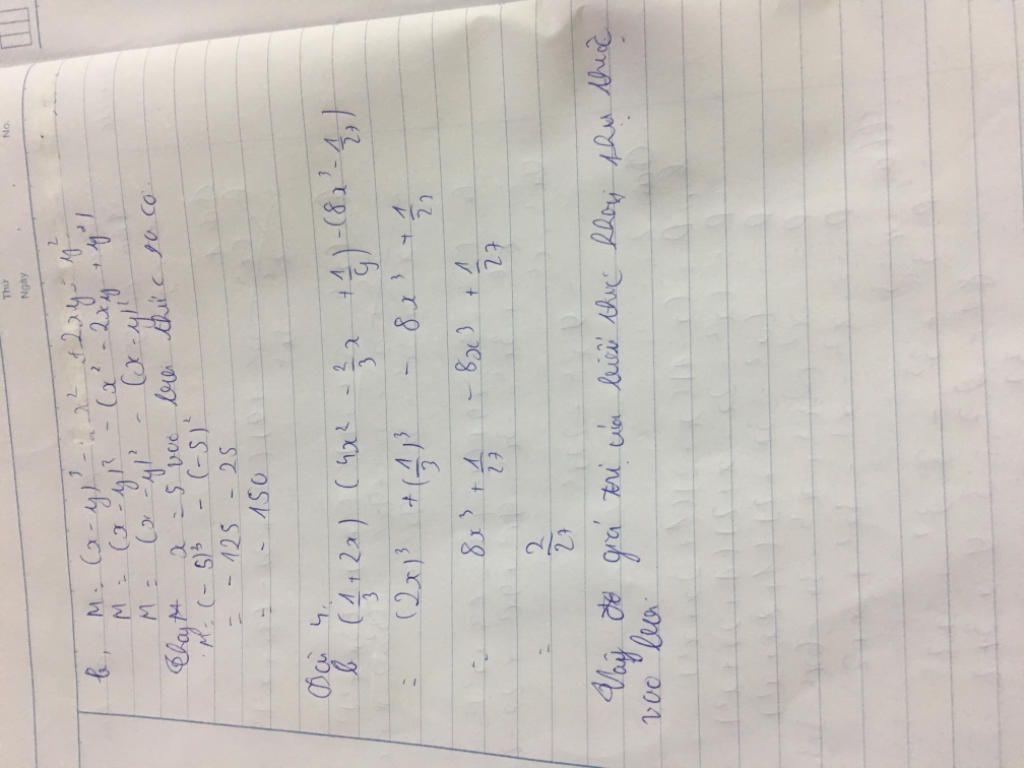 No.
Thứ
Ngày
b, M = (x-y)³ - x² + 2xy - y²
M = (x-y)³ - (x² - 2xy + y²)
M = (x-y)³ - (x-y)²
Thay x = -5 vào biểu thức ta có
M = (-5)³ - (-5)²
= -125 - 25
= -150
Bài 4.
b (1/3 + 2x) (4x² - 2/3x + 1/9) - (8x³ - 1/27)
= (2x)³ + (1/3)³ - 8x³ + 1/27
= 8x³ + 1/27 - 8x³ + 1/27
= 2/27
Vậy giá trị của biểu thức không phụ thuộc
vào biến.